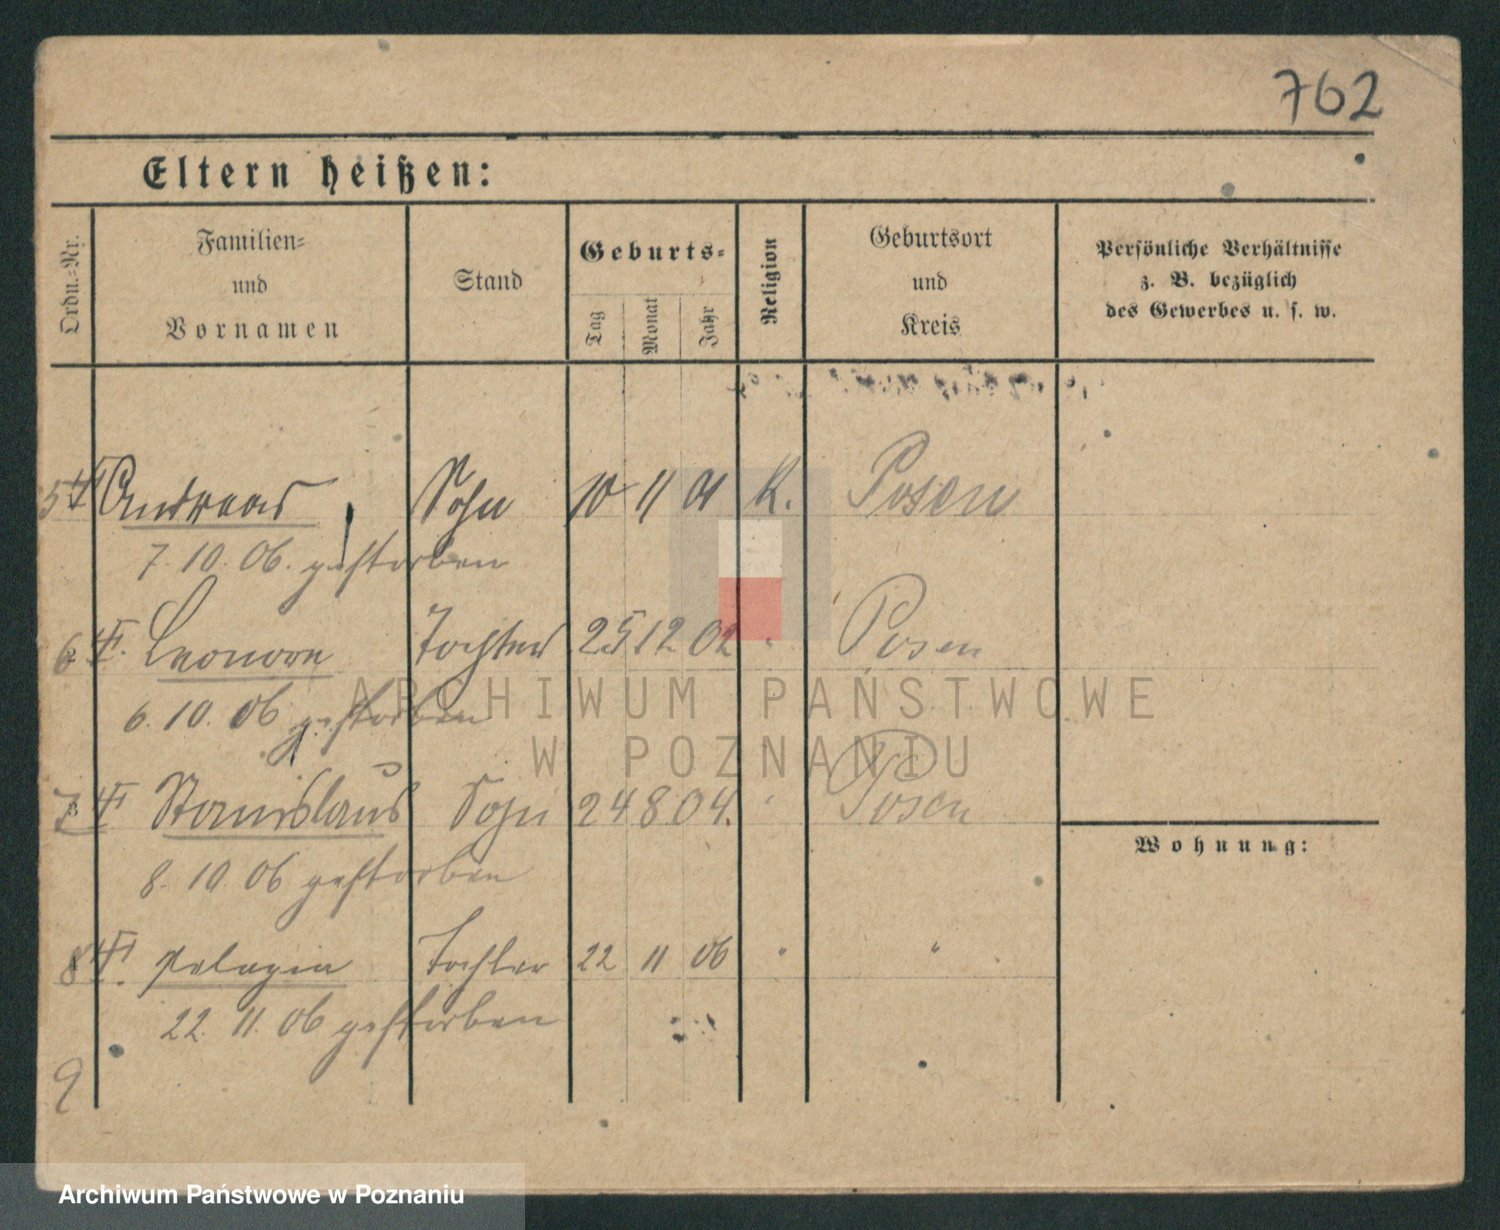 762
Eltern heißen:
Ordn.-Nr.
Familien-
und
Vornamen
Stand
Geburts-
Tag
Monat
Jahr
Religion
Geburtsort
und
Kreis
Persönliche Verhältnisse
z. B. bezüglich
des Gewerbes u. s. w.
5 Andreas Sohn 10 11 01 K. Posen
7. 10. 06. gestorben
6 Leonore Tochter 25 12 02 " Posen
6. 10. 06 gestorben
7 Stanislaus Sohn 24 8 04. " Posen
8. 10. 06 gestorben
8 Pelagia Tochter 22 11 06 " "
22. 11. 06 gestorben
9
Wohnung:
ARCHIWUM PAŃSTWOWE
W POZNANIU
Archiwum Państwowe w Poznaniu